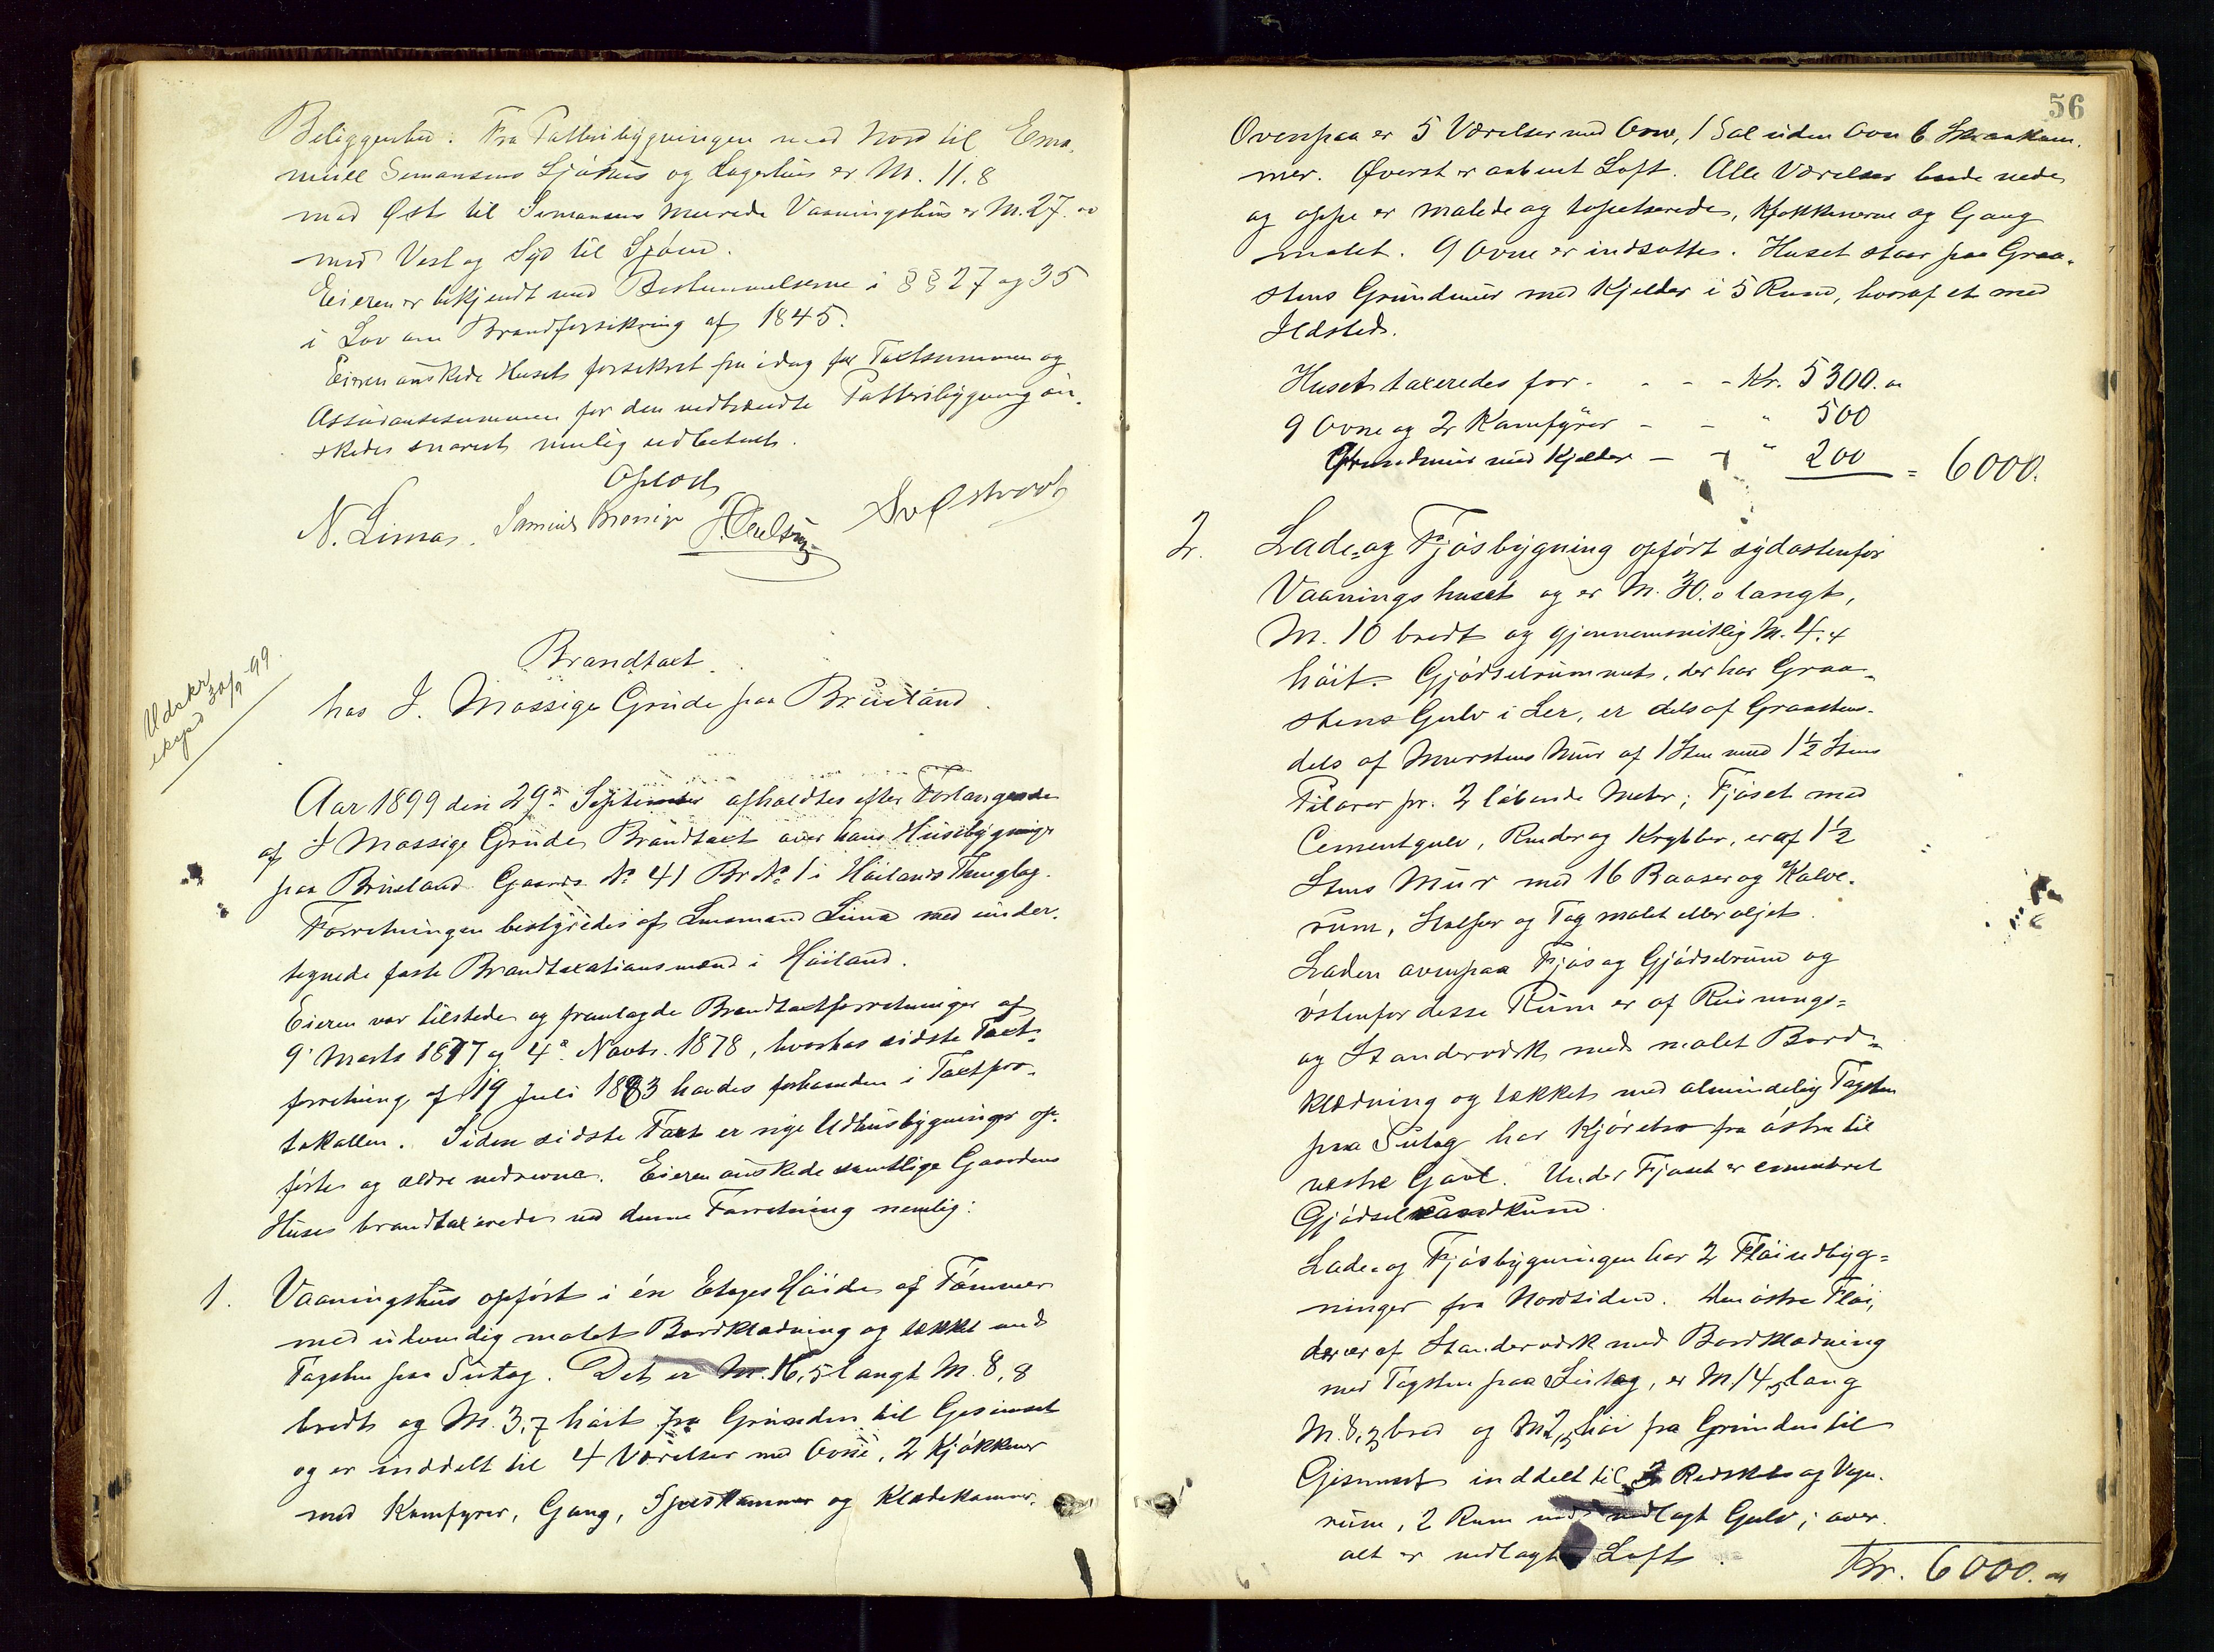 Beliggenhed. Fra Potteribygningen mod Nord til Ema-
nuel Simonsens Sjöhus og Lagerhus er M. 11.8
mod Øst til Simonsens murede Vaaningshus er M. 27.00
mod Vest og Syd til Sjøen.
Eieren er bekjendt med Bestemmelserne i §§ 27 og 35
i Lov om Brandforsikring af 1845.
Eieren önskede Huset forsikret fra idag for Taxtsummen og
Assurancesummen for den nedbrændte Potteribygning ön-
skedes snarest mulig udbetalt.
Oplæst
N. Lima.
Udskr.
exped 30/9-99.
Brandtaxt
hos J. Mossige Grude paa Brueland.
Aar 1899 den 29de September afholdtes efter Forlangende
af J Mossige Grude Brandtaxt over hans Husebygninger
paa Brueland Gaards No 41 Br No 1 i Höilands Thinglag.
Forretningen bestyredes af Lensmand Lima med under-
tegnede faste Brandtaxationsmænd i Höiland.
Eieren var tilstede og fremlagde Brandtaxtforretninger af
9de Marts 1877 og 4de Novbr. 1878, hvorhos sidste Taxt-
forretning af 19 Juli 1883 havdes forhaanden i Taxtpro-
tokollen. Siden sidste Taxt er nye Udhusbygninger op-
förte og ældre nedrevne. Eieren önskede samtlige Gaardens
Huse brandtaxerede ved denne Forretning nemlig:
1. Vaaningshus opfört i én Etages Höide af Tömmer
med udvendig malet Bordklædning og tækket med
Tagsten paa Sutag. Det er M. 16,5 langt M. 8,8
bredt og M. 3,7 höit fra Grunden til Gesimset
og er inddelt til 4 Værelser med Ovne, 2 Kjökkener
med Komfyrer, Gang, Speiskammer og Klædekammer.
56
Ovenpaa er 5 Værelser med Ovn, 1 Sal uden Ovn 6 Skraakam-
mer. Øverst er aabent Loft. Alle Værelser baade nede
og oppe er malede og tapetserede, Kjøkkenerne og Gang
malet. 9 Ovne er indsatte. Huset staar paa Graa-
stens Grundmur med Kjelder i 5 Rum, hvoraf et med
Ildsted.
Huset taxeredes for - - - Kr. 5300.00
9 Ovne og 2 Komfyrer - - " 500
Grundmur med Kjelder - - " 200 = 6000.
2. Lade- og Fjösbygning opfört sydostenfor
Vaaningshuset og er M. 30.0 langt,
M. 10 bredt og gjennemsnitlig M. 4.4
höit. Gjödselrummet, der har Graa-
stens Gulv i Ler, er dels af Graastens-
dels af Murstens Mur af 1 Sten med 1 1/2 Stens
Pilarer pr. 2 löbende Meter; Fjöset med
Cementgulv, Render og Krybber, er af 1 1/2
Stens Mur med 16 Baaser og Kalve-
rum, Stolper og Tag malet eller oljet.
Laden ovenpaa Fjös og Gjödselrum og
östenfor desse Rum er af Reisnings-
og Standerværk med malet Bord-
klædning og tækket med almindelig Tagsten
paa Sutag har Kjörebro fra östre til
vestre Gavl. Under Fjöset er cementeret
Gjödselvandkum.
Lade- og Fjösbygningen har 2 Flöiudbyg-
ninger fra Nordsiden. Den östre Flöi,
der er af Standerværk med Bordklædning
med Tagsten paa Sutag, er M. 14,5 lang
M. 8,3 bred og M 2,5 höi fra Grunden til
Gesimset inddelt til Redskabs og Vogn-
rum, 2 Rum med nedlagt Gulv; over-
alt er nedlagt Loft.
Kr. 6000.00